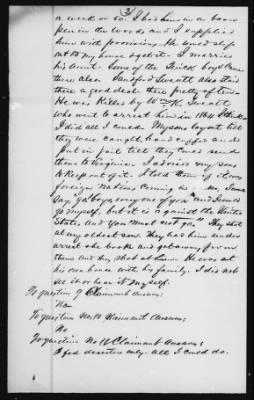 3
a week or so. I had him in a board
pen in the woods and I supplied
him with provisions. He would slip
out to my house & get it. I married
his Aunt. Some of the boys came
there also. Sandford Sweatt also staid
there a good deal there pretty often.
He was killed by Wm K. Sweatt,
who went to arrest him in 1864 I think
I did all I could. My sons layout till
they were caught, hand cuffed and
put in jail till they could send
them to Virginia. I advised my sons
to keep out of it. I told them if it was
foreign Nations coming in I would
say "go boys every one of you" and I would
go myself, but it is against the United
States and you must not go." They shot
at my oldest son. They had him under
arrest & he broke and got away from
them and they shot at him. He was at
his own house with his family. I did not
see it or hear it myself.
To question 9 Claimant Answers:
No
To question No. 10 Claimant Answers;
No
To question No 16 Claimant Answers;
I fed deserters only. All I could do.